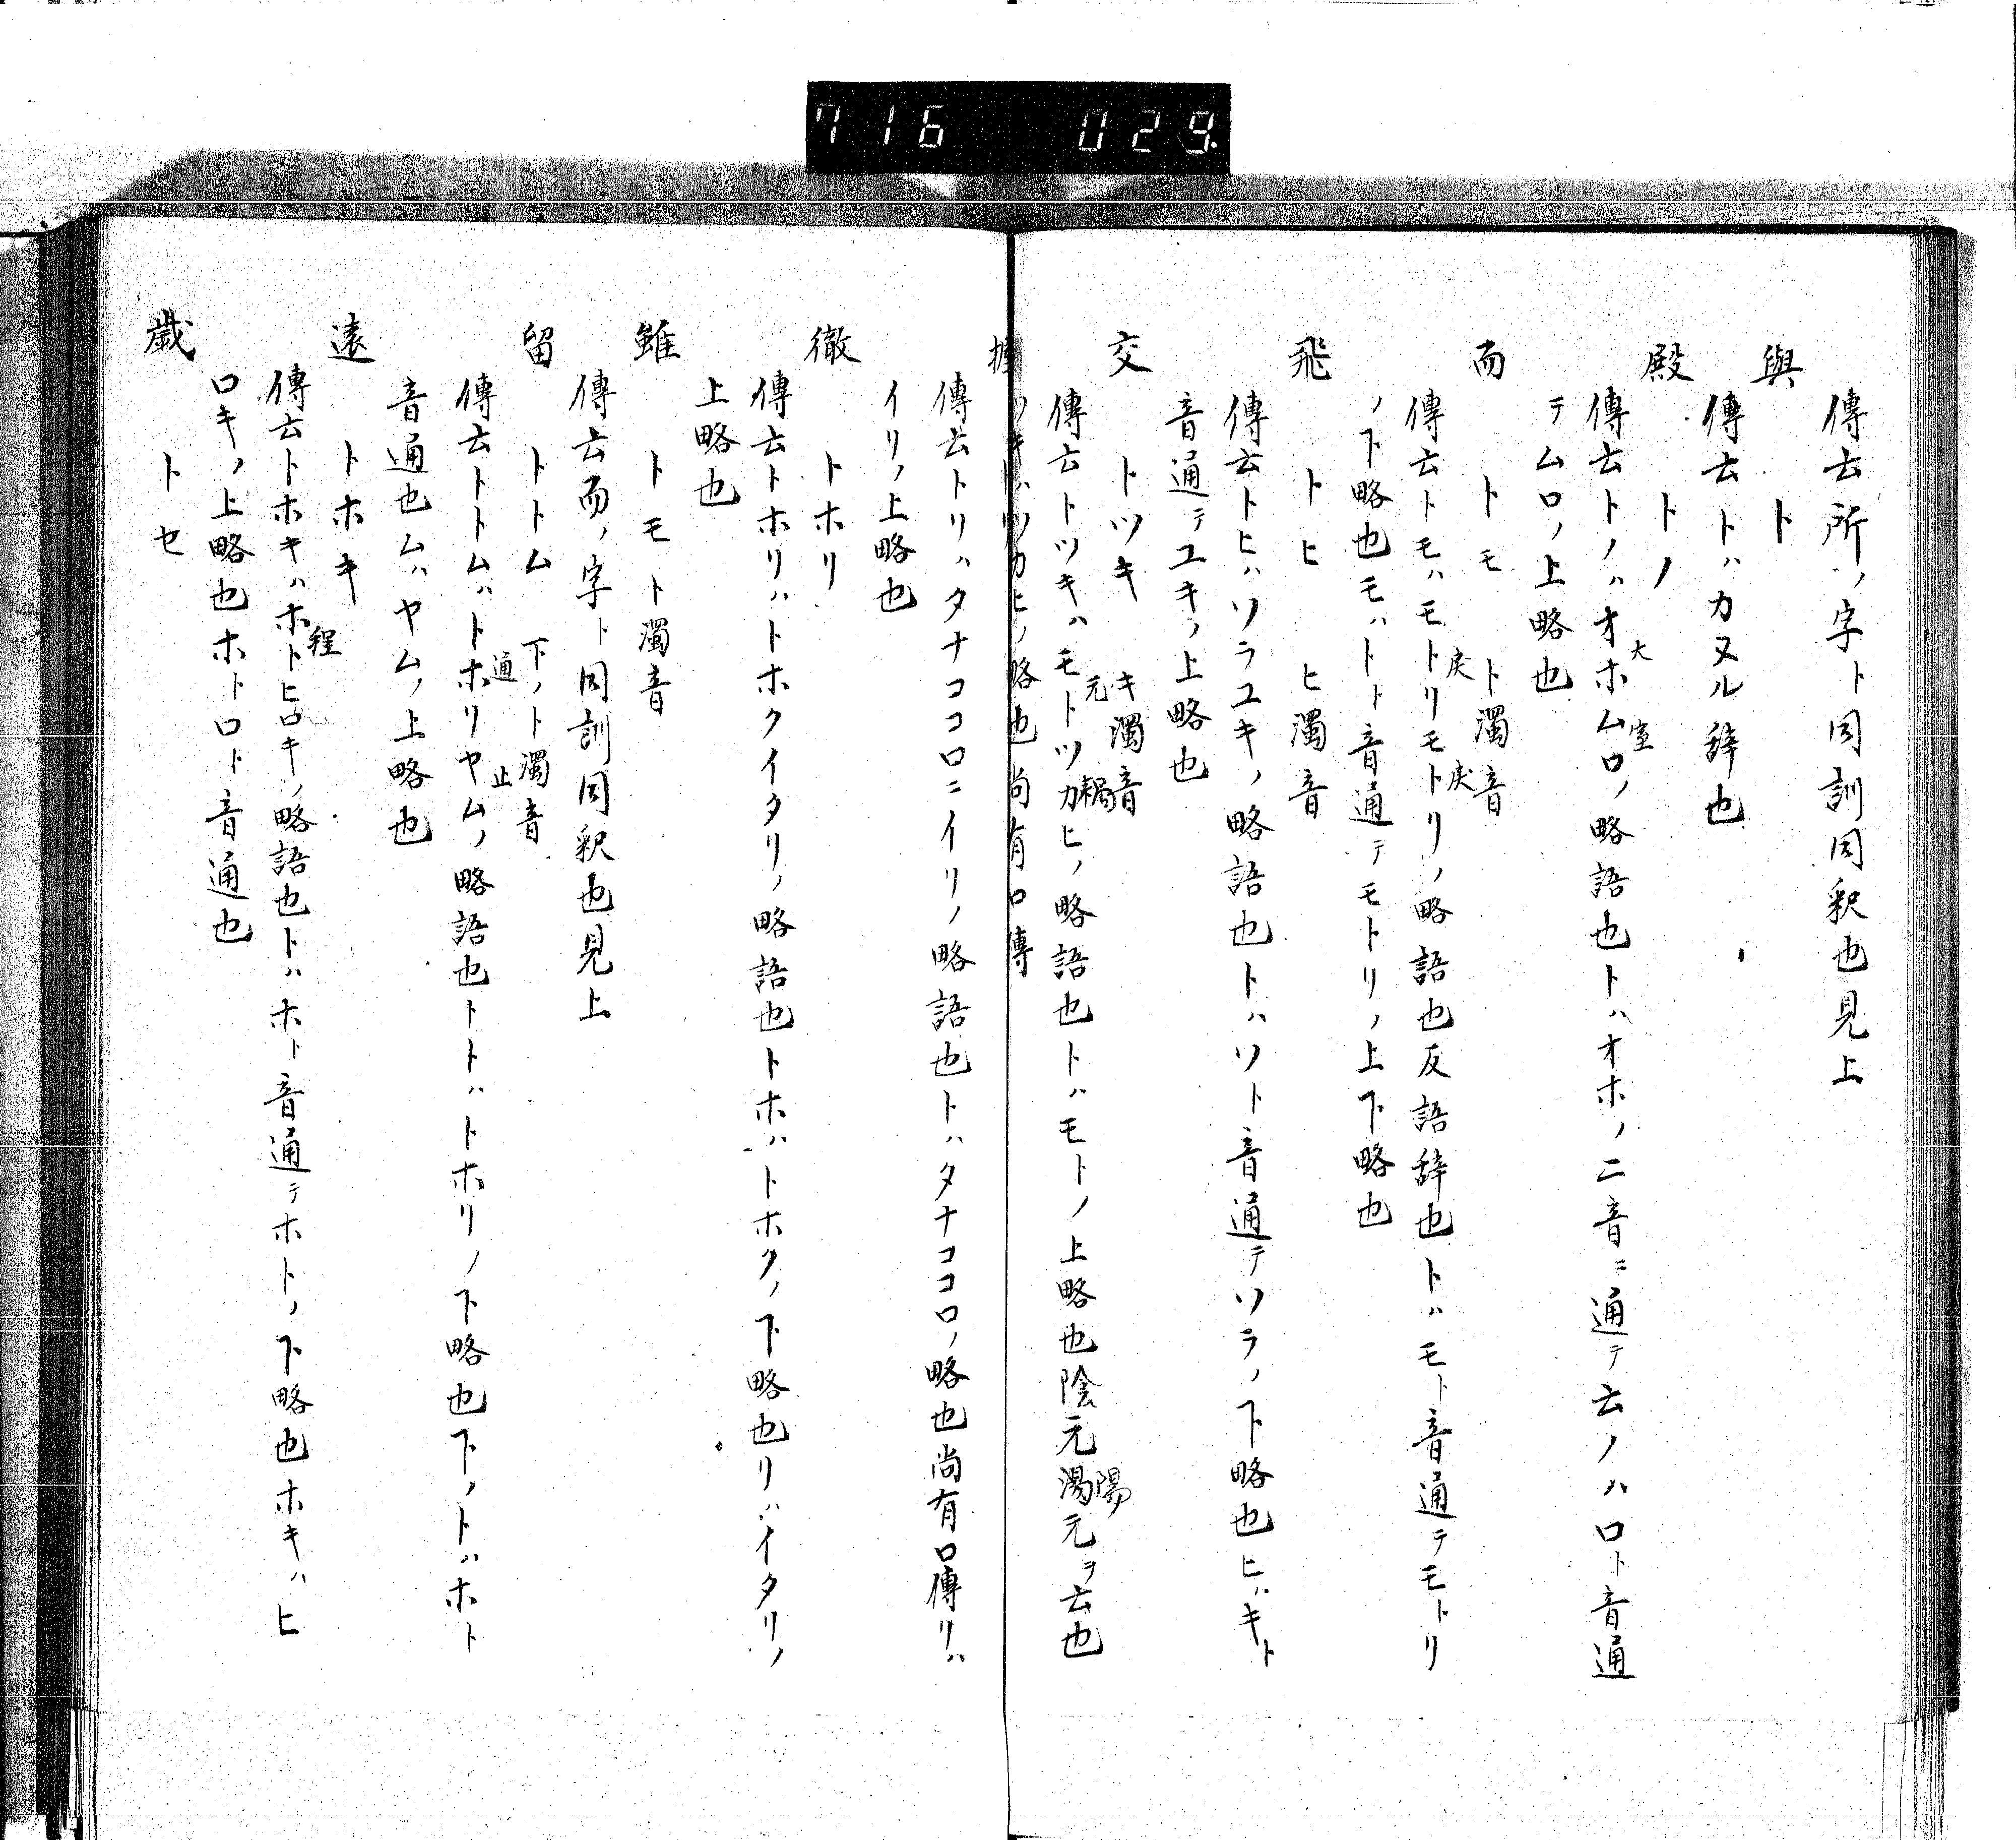 716 029.
傳云所ノ字ト同訓同釈也見上
與 ト
傳云トハカヌル辞也
殿 トノ
傳云トノハオホムロノ略語也トハオホノ二音ニ通テ云ノハロト音通
大 室
テムロノ上略也
而 トモ ト濁音
傳云トモハモトリモトリノ略語也反語辞也トハモト音通テモトリ
戻 戻
ノ下略也モハトト音通テモトリノ上下略也
飛 トヒ ヒ濁音
傳云トヒハソラユキノ略語也トハソト音通テソラノ下略也ヒハキト
音通テユキノ上略也
交 トツキ キ濁音
傳云トツキハモトツカヒノ略語也トハモトノ上略也陰元湯元ヲ云也
元 陽
ツキハツカヒノ略也尚有口傳
握 トリ
傳云トリハタナココロニイリノ略語也トハタナココロノ略也尚有口傳リハ
イリノ上略也
徹 トホリ
傳云トホリハトホクイタリノ略語也トホハトホクノ下略也リハイタリノ
上略也
雖 トモ ト濁音
傳云而ノ字ト同訓同釈也見上
留 トトム 下ノト濁音
傳云トトムハトホリヤムノ略語也トトハトホリノ下略也下ノトハホト
通 止
音通也ムハヤムノ上略也
遠 トホキ
傳云トホキハホトヒロキノ略語也トハホト音通テホトノ下略也ホキハヒ
程
ロキノ上略也ホトロト音通也
歳 トセ